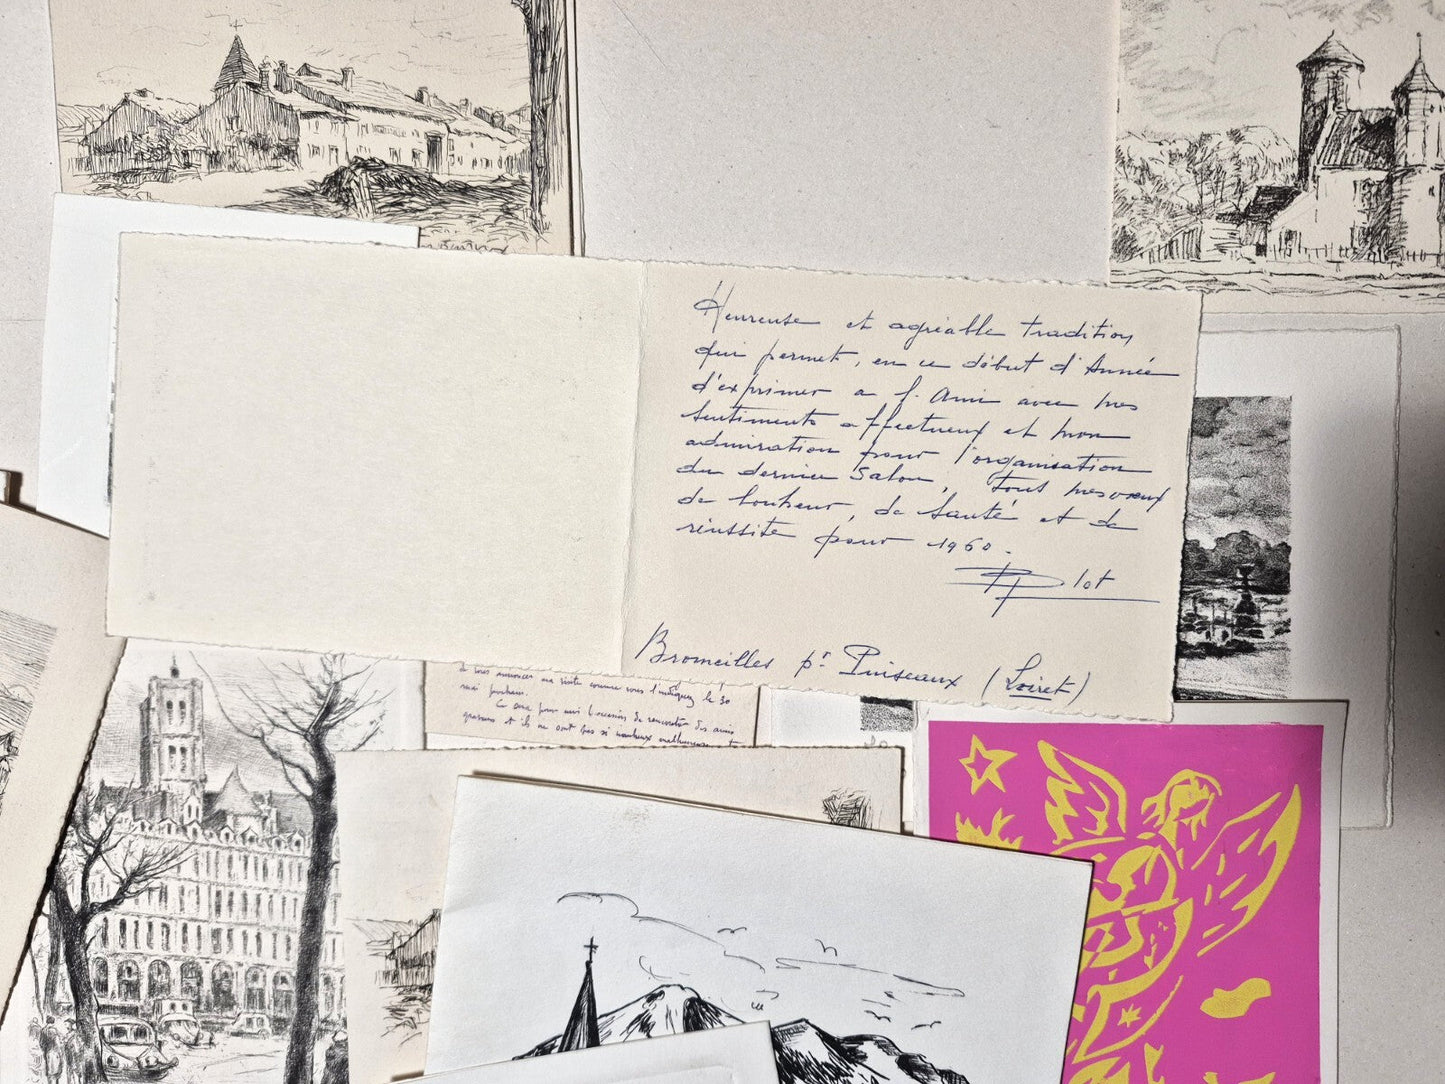 Heureuse et agréable tradition
qui permet, en ce début d'Année
d'exprimer a l'Ami avec mes
sentiments affectueux et mon
admiration pour l'organisation
du dernier Salon, Tout mes vœux
de bonheur, de santé et de
réussite pour 1960.
Plot
Bromeilles pr Puiseaux (Loiret)
à vous annoncer ma visite comme vous l'indiquez le 30
mai prochain.
Ce sera pour moi l'occasion de rencontrer des amis
graveurs et ils ne sont pas si nombreux malheureusement